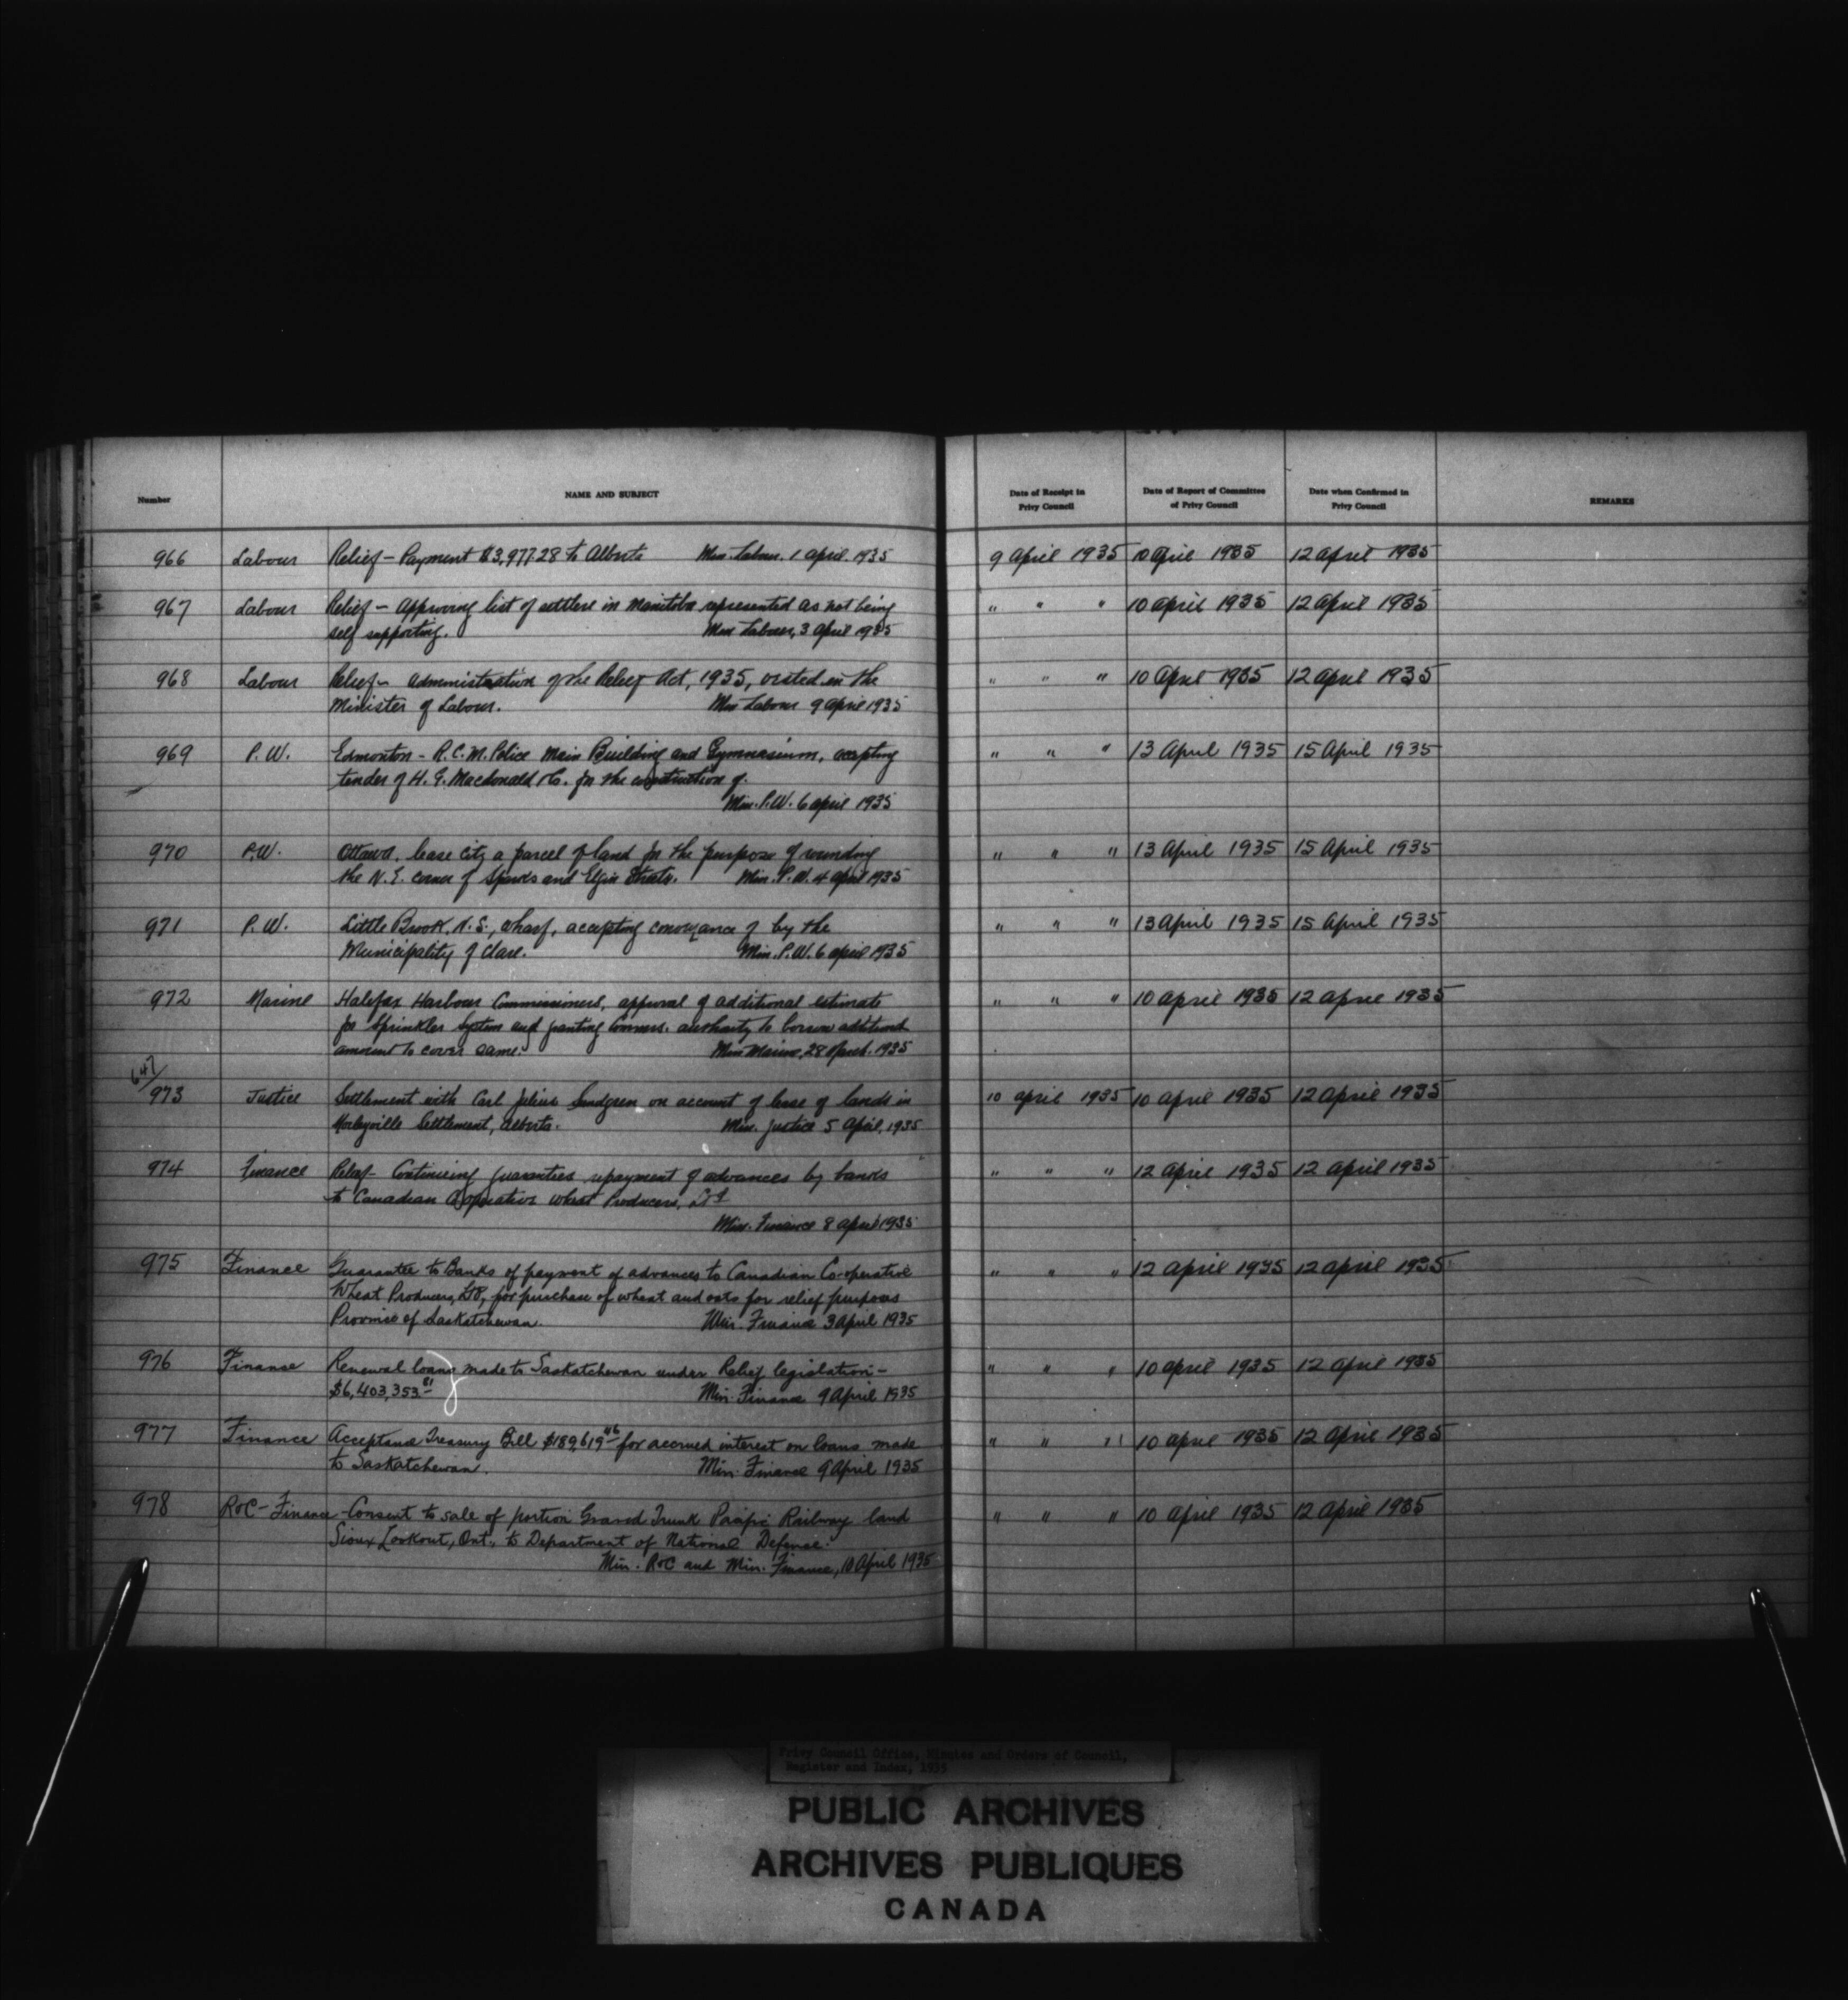 Number NAME AND SUBJECT Date of Receipt in Privy Council Date of Report of Committee of Privy Council Date when Confirmed in Privy Council REMARKS
966 Labour Relief – Payment $3,977.28 to Alberta Min. Labour. 1 April. 1935 9 April 1935 10 April 1935 12 April 1935
967 Labour Relief – Approving list of settlers in Manitoba represented as not being " " " 10 April 1935 12 April 1935
self supporting. Min Labour, 3 April 1935
968 Labour Relief – Administration of the Relief Act, 1935, vested in the " " " 10 April 1935 12 April 1935
Minister of Labour. Min Labour 9 April 1935
969 P.W. Edmonton – R.C.M. Police Main Building and Gymnasium, accepting " " " 13 April 1935 15 April 1935
tender of H. G. Macdonald & Co. for the construction of.
Min. P.W. 6 April 1935
970 P.W. Ottawa, lease city a parcel of land for the purpose of rounding " " " 13 April 1935 15 April 1935
the N.E. corner of Sparks and Elgin Streets. Min. P.W. 4 April 1935
971 P.W. Little Brook, N.S., wharf, accepting conveyance of by the " " " 13 April 1935 15 April 1935
Municipality of Clare. Min. P.W. 6 April 1935
972 Marine Halifax Harbour Commissioners, approval of additional estimate " " " 10 April 1935 12 April 1935
for Sprinkler System and granting Commrs. authority to borrow additional
amount to cover same. Min Marine, 28 March. 1935
647/
973 Justice Settlement with Carl Julius Sundgren on account of lease of lands in 10 April 1935 10 April 1935 12 April 1935
Morleyville Settlement, Alberta. Min. Justice 5 April, 1935
974 Finance Relief – Continuing guarantees repayment of advances by banks " " " 12 April 1935 12 April 1935
to Canadian Cooperative Wheat Producers, Ltd
Min. Finance 8 April 1935
975 Finance Guarantee to Banks of payment of advances to Canadian Co-operative " " " 12 April 1935 12 April 1935
Wheat Producers, Ltd, for purchase of wheat and oats for relief purposes
Province of Saskatchewan. Min. Finance 3 April 1935
976 Finance Renewal loans made to Saskatchewan under Relief legislation – " " " 10 April 1935 12 April 1935
$6,403,353.81 Min. Finance 9 April 1935
977 Finance Acceptance Treasury Bill $189,619.46 for accrued interest on loans made " " " 10 April 1935 12 April 1935
to Saskatchewan. Min. Finance 9 April 1935
978 R&C – Finance – Consent to sale of portion Grand Trunk Pacific Railway land " " " 10 April 1935 12 April 1935
Sioux Lookout, Ont., to Department of National Defense.
Min. R&C and Min. Finance, 10 April 1935
Privy Council Office, Minutes and Orders of Council,
Register and Index, 1935
PUBLIC ARCHIVES
ARCHIVES PUBLIQUES
CANADA